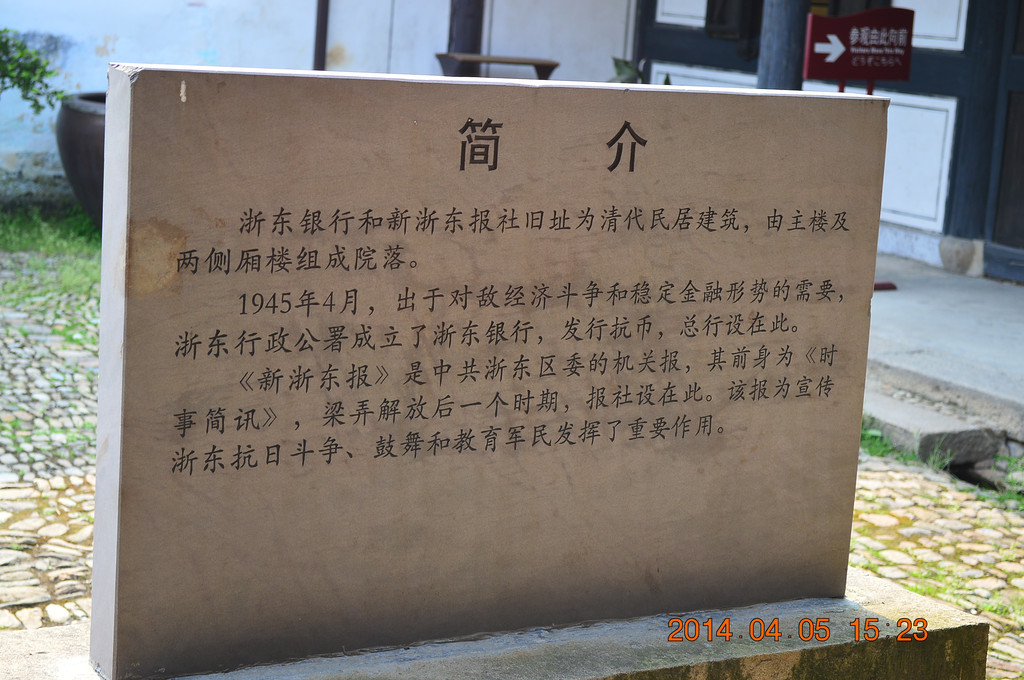 参观由此向前
Visitors Move This Way
どうぞこちらへ
简 介
浙东银行和新浙东报社旧址为清代民居建筑，由主楼及
两侧厢楼组成院落。
1945年4月，出于对敌经济斗争和稳定金融形势的需要，
浙东行政公署成立了浙东银行，发行抗币，总行设在此。
《新浙东报》是中共浙东区委的机关报，其前身为《时
事简讯》，梁弄解放后一个时期，报社设在此。该报为宣传
浙东抗日斗争、鼓舞和教育军民发挥了重要作用。
2014.04.05 15:23